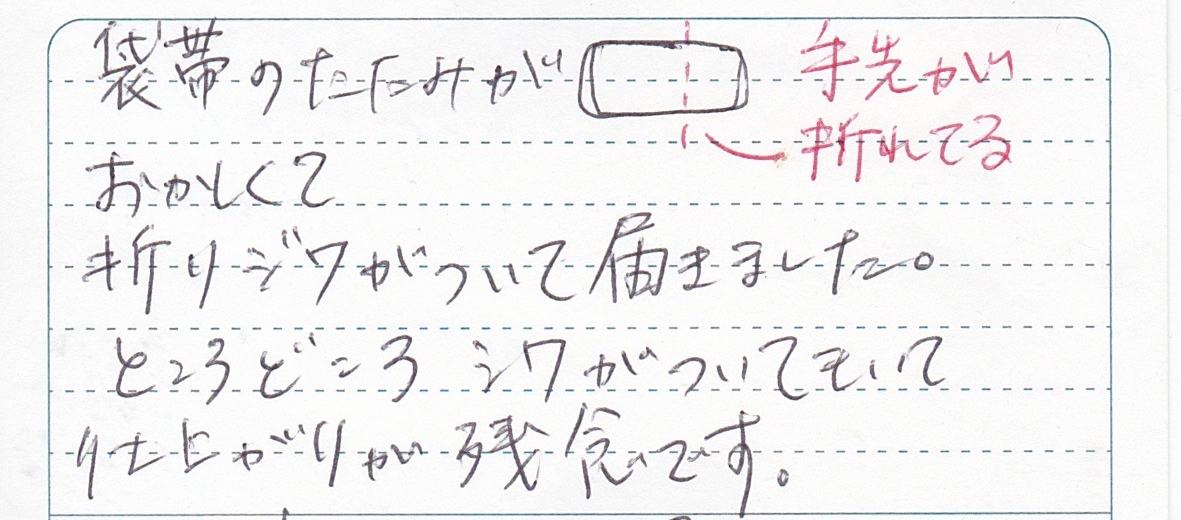 袋帯のたたみが
手先が
折れてる
おかしくて
折りジワがついて届きました。
ところどころ シワがついてもいて
仕上がりが残念です。